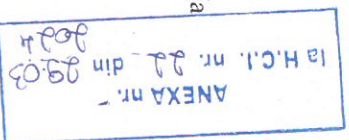 ANEXA nr.
la H.C.l. nr. 22 din 29.03
2024
a